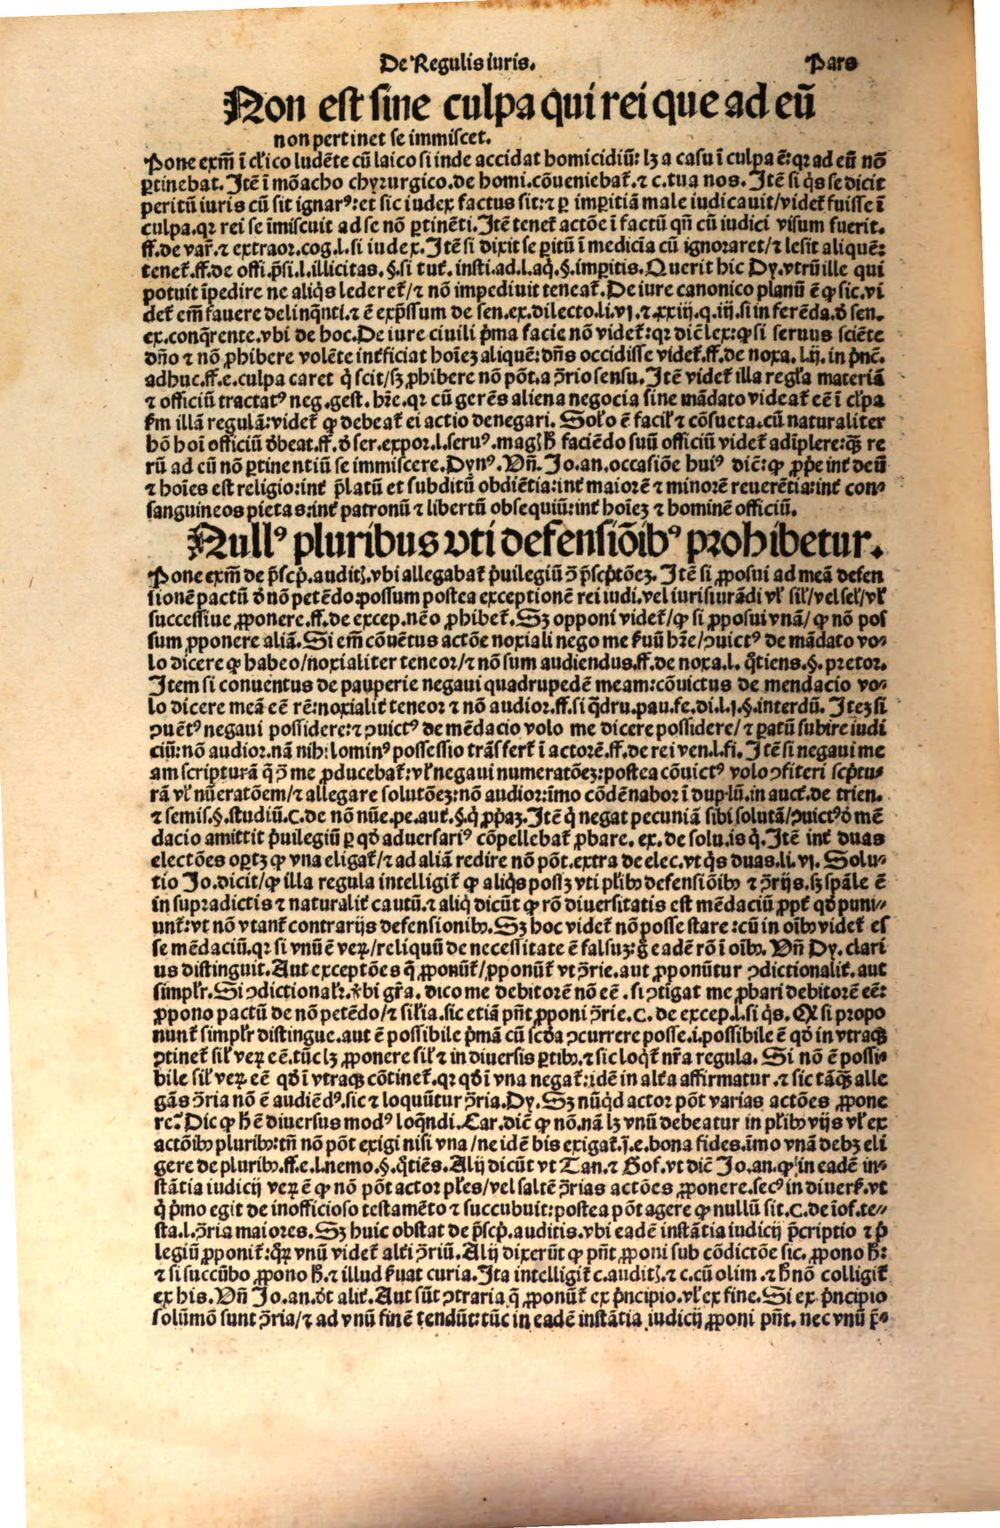 De Regulis iuris. Pars
Non est sine culpa qui rei que ad eū
non pertinet se immiscet.
Pone exm̄ ī cl̓ico ludēte cū laico si inde accidat homicidiū: lꝫ a casu ī culpa ē: qꝛ ad eū nō
ꝑtinebat. Itē ī mōacho chyrurgico. de homi. cōveniebat̄. ⁊ c. tua nos. Itē si q̇s se dicit
peritū iuris cū sit ignarꝰ: et sic iudex factus sit: ⁊ ꝑ imꝑitiā male iudicauit/videt̄ fuisse ī
culpa. qꝛ rei se īmiscuit ad se nō ꝑtinēti. Itē tenet̄ actōe ī factū qn̄ cū iudici visum fuerit.
ff. de var̄. ⁊ extraor. cog. l. si iudex. Itē si dixit se ꝑitū ī medicīa cū ignoraret/⁊ lesit aliquē:
tenet̄. ff. de offi. p̄si. l. illicitas. §. si tut̄. insti. ad. l. aq̇. §. imꝑitis. Querit hic Dy. vtrū ille qui
potuit īpedire ne aliq̇s lederet̄/⁊ nō impediuit teneat̄. De iure canonico planū ē ꝙ sic. vi
det̄ em̄ fauere delinq̄nti. ⁊ ē exp̄ssum de sen. ex. dilecto. li. vj. ⁊ xxiij. q. iij. si inferēda. ⁊ đ sen.
ex. conq̄rente. vbi de hoc. De iure ciuili p̓ma facie nō videt̄: qꝛ diē lex: ꝙ si seruus sciēte
dn̄o ⁊ nō ꝓhibere volēte inẗficiat hoīez aliquē: dn̄s occidisse videt̄. ff. de noxa. l. ij. in p̓nē.
adhuc. ff. e. culpa caret q̇ scit/sꝫ ꝓhibere nō pōt. a ↄ̄rio sensu. Itē videt̄ illa regl̓a materiā
⁊ officiū tractatꝰ neg. gest. hr̄e. qꝛ cū gerēs aliena negocia sine mādato videat̄ eē ī cl̓pa
ẜm illā regulā: videt̄ ꝙ debeat̄ ei actio denegari. Sol̓o ē facil̓ ⁊ cōsueta. cū naturaliter
hō hoī officiū đbeat. ff. đ ser. expor. l. seruꝰ. mag̓ ħ faciēdo suū officiū videt̄ adīplere: q̄ꝫ re
rū ad eū nō ꝑtinentiū se immiscere. Dynꝰ. Vn̄. Jo. an. occasiōe huiꝰ diē: ꝙ ꝓp̓e int̄ deū
⁊ hoīes est religio: int̄ p̄latū et subditū obdiētia: int̄ maiorē ⁊ minorē reuerētia: int̄ con⸗
sanguineos pietas: int̄ patronū ⁊ libertū obsequiū: int̄ hoīez ⁊ hominē officiū.
Nullꝰ pluribus vti defensiōibꝰ prohibetur.
Pone exm̄ de p̄scp̓. auditꝭ. vbi allegabat̄ p̓uilegiū ↄ̄ p̄scp̓tōez. Itē si ꝓposui ad meā defen
sionē pactū đ nō petēdo possum postea exceptionē rei iudi. vel iurisiurādi vl̓ sil̓/vel sel̓/vl̓
successiue ꝓponere. ff. de excep. nēo ꝓhibet̄. Sꝫ opponi videt̄/ꝙ si ꝓposui vnā/ꝙ nō pos
sum ꝓponere aliā. Si em̄ cōuētus actōe noxiali nego me ẜuū hr̄e/ↄuictꝰ de mādato vo⸗
lo dicere ꝙ habeo/noxialiter teneor/⁊ nō sum audiendus. ff. de noxa. l. q̄tiens. §. pretor.
Item si conuentus de pauperie negaui quadrupedē meam: cōuictus de mendacio vo⸗
lo dicere meā eē rē: noxialit̄ teneor ⁊ nō audior. ff. si q̄dru. pau. fe. di. l. j. §. interdū. Itez si
ↄuētꝰ negaui possidere: ⁊ ↄuictꝰ de mēdacio volo me dicere possidere/⁊ ꝑatū subire iudi
ciū: nō audior. nā nihilominꝰ possessio trāsfert̄ ī actorē. ff. de rei ven. l. fi. Itē si negaui me
am scripturā q̄ ↄ̄ me ꝓducebat̄: vl̓ negaui numeratōez: postea cōuictꝰ volo ↄfiteri scp̓tu⸗
rā vl̓ nūeratōem/⁊ allegare solutōez: nō audior: īmo cōdēnabor ī dup̓lū. in auct̄. de trien.
⁊ semis. §. studiū. C. de nō nūe. pe. aut̄. §. q̇ ꝓp̓az. Itē q̇ negat pecuniā sibi solutā/ↄuictꝰ đ mē
dacio amittit p̓uilegiū ꝑ qđ aduersariꝰ cōpellebat̄ ꝓbare. ex. de solu. is q̇. Itē int̄ duas
electōes oꝑtꝫ ꝙ vna eligat̄/⁊ ad aliā redire nō pōt. extra de elec. vt q̇s duas. li. vj. Solu⸗
tio Jo. dicit/ꝙ illa regula intelligit̄ ꝙ aliq̇s possꝫ vti pl̓ibꝫ defensiōibꝫ ⁊ ↄ̄rijs. sꝫ spāle ē
in supradictis ⁊ naturalit̄ cautū. ⁊ aliq̇ dicūt ꝙ rō diuersitatis est mēdaciū ꝓpt̄ qđ puni⸗
unt̄: vt nō vtant̄ contrarijs defensionibꝫ. Sꝫ hoc videt̄ nō posse stare: cū in oībꝫ videt̄ es
se mēdaciū. qꝛ si vnū ē veꝝ/reliquū de necessitate ē falsuꝫ: ḡ eadē rō ī oībꝫ. Vn̄ Dy. clari
us distinguit. Aut exceptōes q̄ ꝓponūt̄/ꝓponūt̄ vt ↄ̄rie. aut ꝓponūtur ↄdictionalit̄. aut
simpl̓r. Si ↄdictional̓r. vbi gr̄a. dico me debitorē nō eē. si ↄtigat me ꝓbari debitorē eē:
ꝓpono pactū de nō petēdo/⁊ sil̓ia. sic etiā pn̄t ꝓponi ↄ̄rie. C. de excep. l. si q̇s. Qđ si propo
nunt̄ simpl̓r distingue. aut ē possibile p̓mā cū scđa ↄcurrere posse. i. possibile ē qđ in vtraqꝫ
ↄtinet̄ sil̓ veꝝ eē. tūc lꝫ ꝓponere sil̓ ⁊ in diuersis ꝑtibꝫ. ⁊ sic loqt̄ nr̄a regula. Si nō ē possi⸗
bile sil̓ veꝝ eē qđ ī vtraqꝫ cōtinet̄. qꝛ qđ ī vna negat̄: idē in alt̄a affirmatur. ⁊ sic tāq̄ꝫ alle
gās ↄ̄ria nō ē audiēdꝰ. sic ⁊ loquūtur ↄ̄ria. Dy. Sꝫ nūq̇d actor pōt varias actōes ꝓpone
re? Dic ꝙ hē diuersus modꝰ loq̄ndi. Car. diē ꝙ nō. nā lꝫ vnū debeatur in pl̓ibꝫ vijs vl̓ ex
actōibꝫ pluribꝫ: tn̄ nō pōt exigi nisi vna/ne idē bis exigat̄. j. e. bona fides. īmo vnā debꝫ eli
gere de pluribꝫ. ff. e. l. nemo. §. q̄tiēs. Alij dicūt vt Tan. ⁊ Gof. vt diē Jo. an. ꝙ in eadē in⸗
stātia iudicij veꝝ ē ꝙ nō pōt actor pl̓es/vel saltē ↄ̄rias actōes ꝓponere. secꝰ in diuers̄. vt
q̇ p̓mo egit de inofficioso testamēto ⁊ succubuit: postea pōt agere ꝙ nullū sit. C. de īof. te⸗
sta. l. ↄ̄ria maiores. Sꝫ huic obstat de p̄scp̓. auditis. vbi eadē instātia iudicij p̄criptio ⁊ p̓
legiū ꝓponit̄: quoꝝ vnū videt̄ alt̄i ↄ̄riū. Alij dixerūt ꝙ pn̄t ꝓponi sub cōdictōe sic. ꝓpono ħ:
⁊ si succūbo ꝓpono ħ. ⁊ illud ẜuat curia. Ita intelligit̄ c. auditꝭ. ⁊ c. cū olim. ⁊ ħ nō colligit̄
ex his. Vn̄ Jo. an. đt alit̄. Aut sūt ↄtraria q̄ ꝓponūt̄ ex p̓ncipio. vl̓ ex fine. Si ex p̓ncipio
solūmō sunt ↄ̄ria/⁊ ad vnū finē tendūt: tūc in eadē instātia iudicij ꝓponi pn̄t. nec vnū p̄⸗